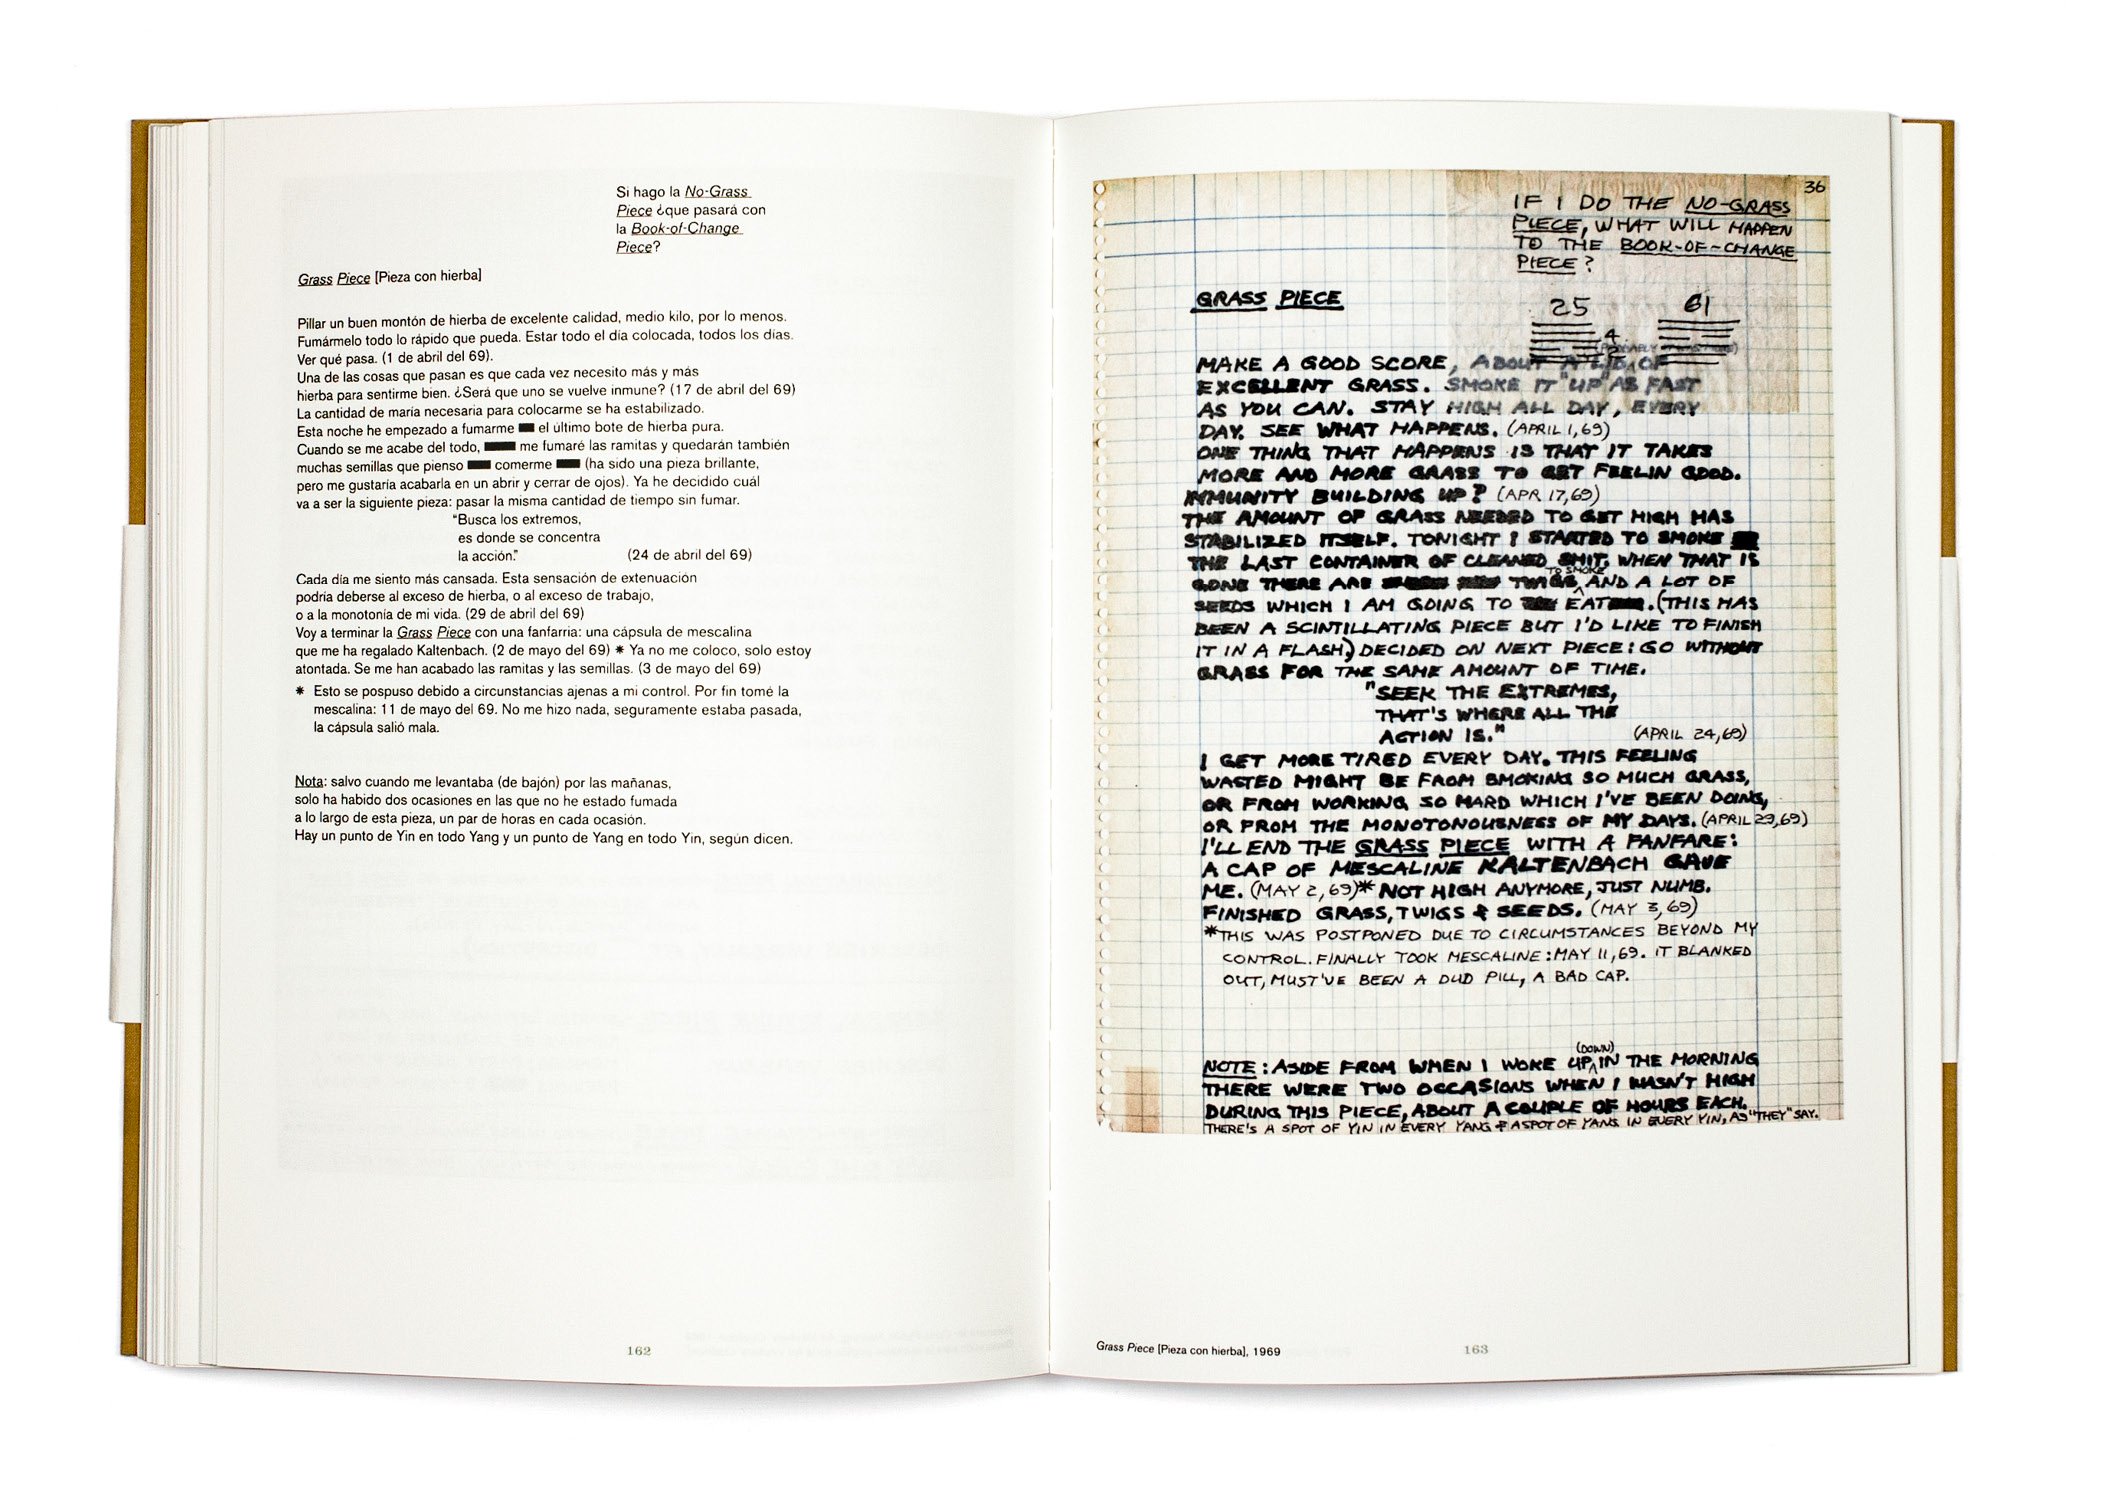 Si hago la No-Grass
Piece ¿que pasará con
la Book-of-Change
Piece?
Grass Piece [Pieza con hierba]
Pillar un buen montón de hierba de excelente calidad, medio kilo, por lo menos.
Fumármelo todo lo rápido que pueda. Estar todo el día colocada, todos los días.
Ver qué pasa. (1 de abril del 69).
Una de las cosas que pasan es que cada vez necesito más y más
hierba para sentirme bien. ¿Será que uno se vuelve inmune? (17 de abril del 69)
La cantidad de maría necesaria para colocarme se ha estabilizado.
Esta noche he empezado a fumarme el último bote de hierba pura.
Cuando se me acabe del todo, me fumaré las ramitas y quedarán también
muchas semillas que pienso comerme (ha sido una pieza brillante,
pero me gustaría acabarla en un abrir y cerrar de ojos). Ya he decidido cuál
va a ser la siguiente pieza: pasar la misma cantidad de tiempo sin fumar.
"Busca los extremos,
es donde se concentra
la acción." (24 de abril del 69)
Cada día me siento más cansada. Esta sensación de extenuación
podría deberse al exceso de hierba, o al exceso de trabajo,
o a la monotonía de mi vida. (29 de abril del 69)
Voy a terminar la Grass Piece con una fanfarria: una cápsula de mescalina
que me ha regalado Kaltenbach. (2 de mayo del 69) * Ya no me coloco, solo estoy
atontada. Se me han acabado las ramitas y las semillas. (3 de mayo del 69)
* Esto se pospuso debido a circunstancias ajenas a mi control. Por fin tomé la
mescalina: 11 de mayo del 69. No me hizo nada, seguramente estaba pasada,
la cápsula salió mala.
Nota: salvo cuando me levantaba (de bajón) por las mañanas,
solo ha habido dos ocasiones en las que no he estado fumada
a lo largo de esta pieza, un par de horas en cada ocasión.
Hay un punto de Yin en todo Yang y un punto de Yang en todo Yin, según dicen.
162
36
IF I DO THE NO-GRASS
PIECE, WHAT WILL HAPPEN
TO THE BOOK-OF-CHANGE
PIECE?
GRASS PIECE
25 61
4
MAKE A GOOD SCORE, ABOUT A LID OF
EXCELLENT GRASS. SMOKE IT "UP" AS FAST
AS YOU CAN. STAY HIGH ALL DAY, EVERY
DAY. SEE WHAT HAPPENS. (APRIL 1,69)
ONE THING THAT HAPPENS IS THAT IT TAKES
MORE AND MORE GRASS TO GET FEELIN GOOD.
IMMUNITY BUILDING UP? (APR 17,69)
THE AMOUNT OF GRASS NEEDED TO GET HIGH HAS
STABILIZED ITSELF. TONIGHT I STARTED TO SMOKE
THE LAST CONTAINER OF CLEANED SHIT. WHEN THAT IS
GONE THERE ARE TWIGS TO SMOKE AND A LOT OF
SEEDS WHICH I AM GOING TO EAT. (THIS HAS
BEEN A SCINTILLATING PIECE BUT I'D LIKE TO FINISH
IT IN A FLASH) DECIDED ON NEXT PIECE: GO WITHOUT
GRASS FOR THE SAME AMOUNT OF TIME.
"SEEK THE EXTREMES,
THAT'S WHERE ALL THE
ACTION IS." (APRIL 24,69)
I GET MORE TIRED EVERY DAY. THIS FEELING
WASTED MIGHT BE FROM SMOKING SO MUCH GRASS,
OR FROM WORKING SO HARD WHICH I'VE BEEN DOING,
OR FROM THE MONOTONOUSNESS OF MY DAYS. (APRIL 29,69)
I'LL END THE GRASS PIECE WITH A FANFARE:
A CAP OF MESCALINE KALTENBACH GAVE
ME. (MAY 2,69)* NOT HIGH ANYMORE, JUST NUMB.
FINISHED GRASS, TWIGS & SEEDS. (MAY 3,69)
*THIS WAS POSTPONED DUE TO CIRCUMSTANCES BEYOND MY
CONTROL. FINALLY TOOK MESCALINE: MAY 11,69. IT BLANKED
OUT, MUST'VE BEEN A DUD PILL, A BAD CAP.
NOTE: ASIDE FROM WHEN I WOKE UP (DOWN) IN THE MORNING
THERE WERE TWO OCCASIONS WHEN I WASN'T HIGH
DURING THIS PIECE, ABOUT A COUPLE OF HOURS EACH.
THERE'S A SPOT OF YIN IN EVERY YANG & A SPOT OF YANG IN EVERY YIN, AS "THEY" SAY.
Grass Piece [Pieza con hierba], 1969
163